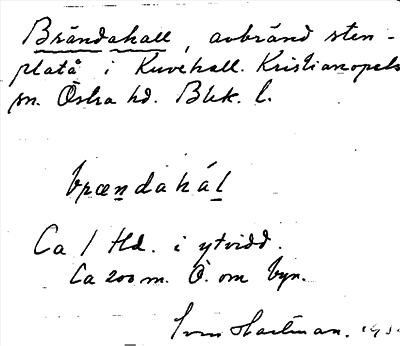 Brändahall, avbränd sten-
platå i Kuvehall. Kristianopels
sn. Östra hd. Blek. l.
brændahál
Ca 1 Hd. i ytvidd.
Ca 200 m. Ö. om byn.
Sven Hartman. 193